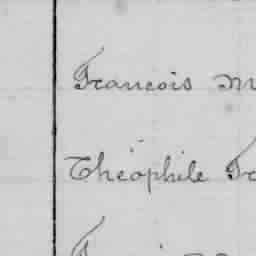 Francois M
Théophile Fr